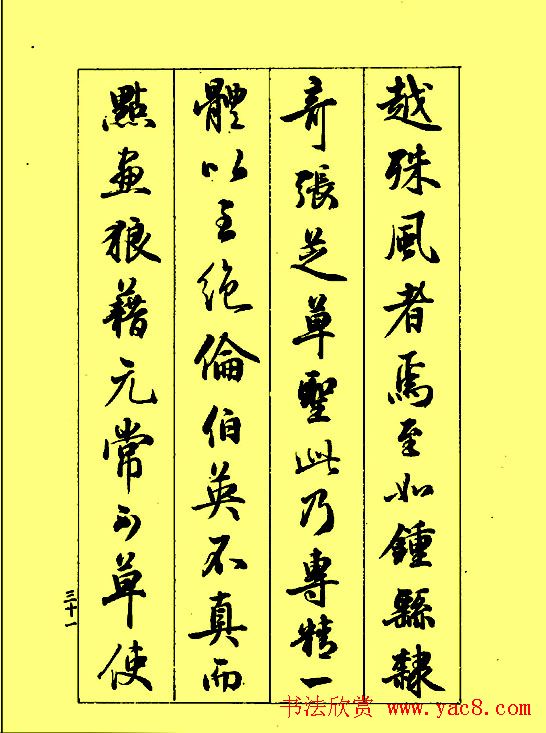 越殊風者焉至如鍾繇隸
奇張芝草聖此乃專精一
體以至絕倫伯英不真而
點畫狼藉元常不草使
三十一
书法欣赏 www.yac8.com